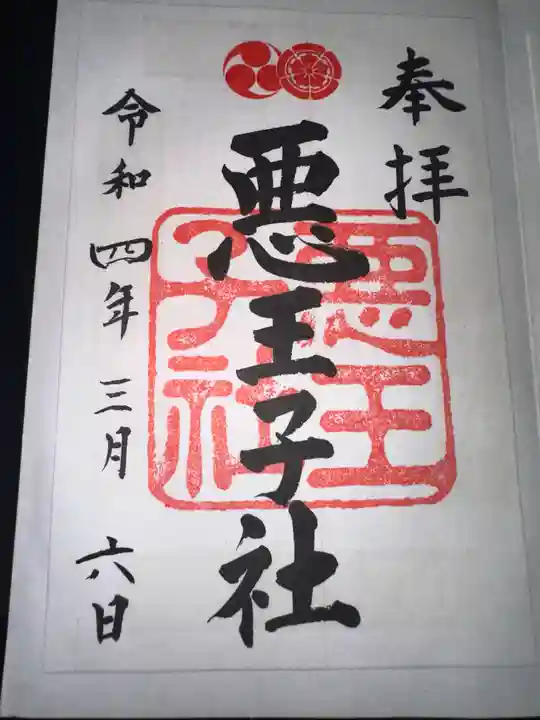 奉拝
悪王子社
悪王子社
令和四年三月六日